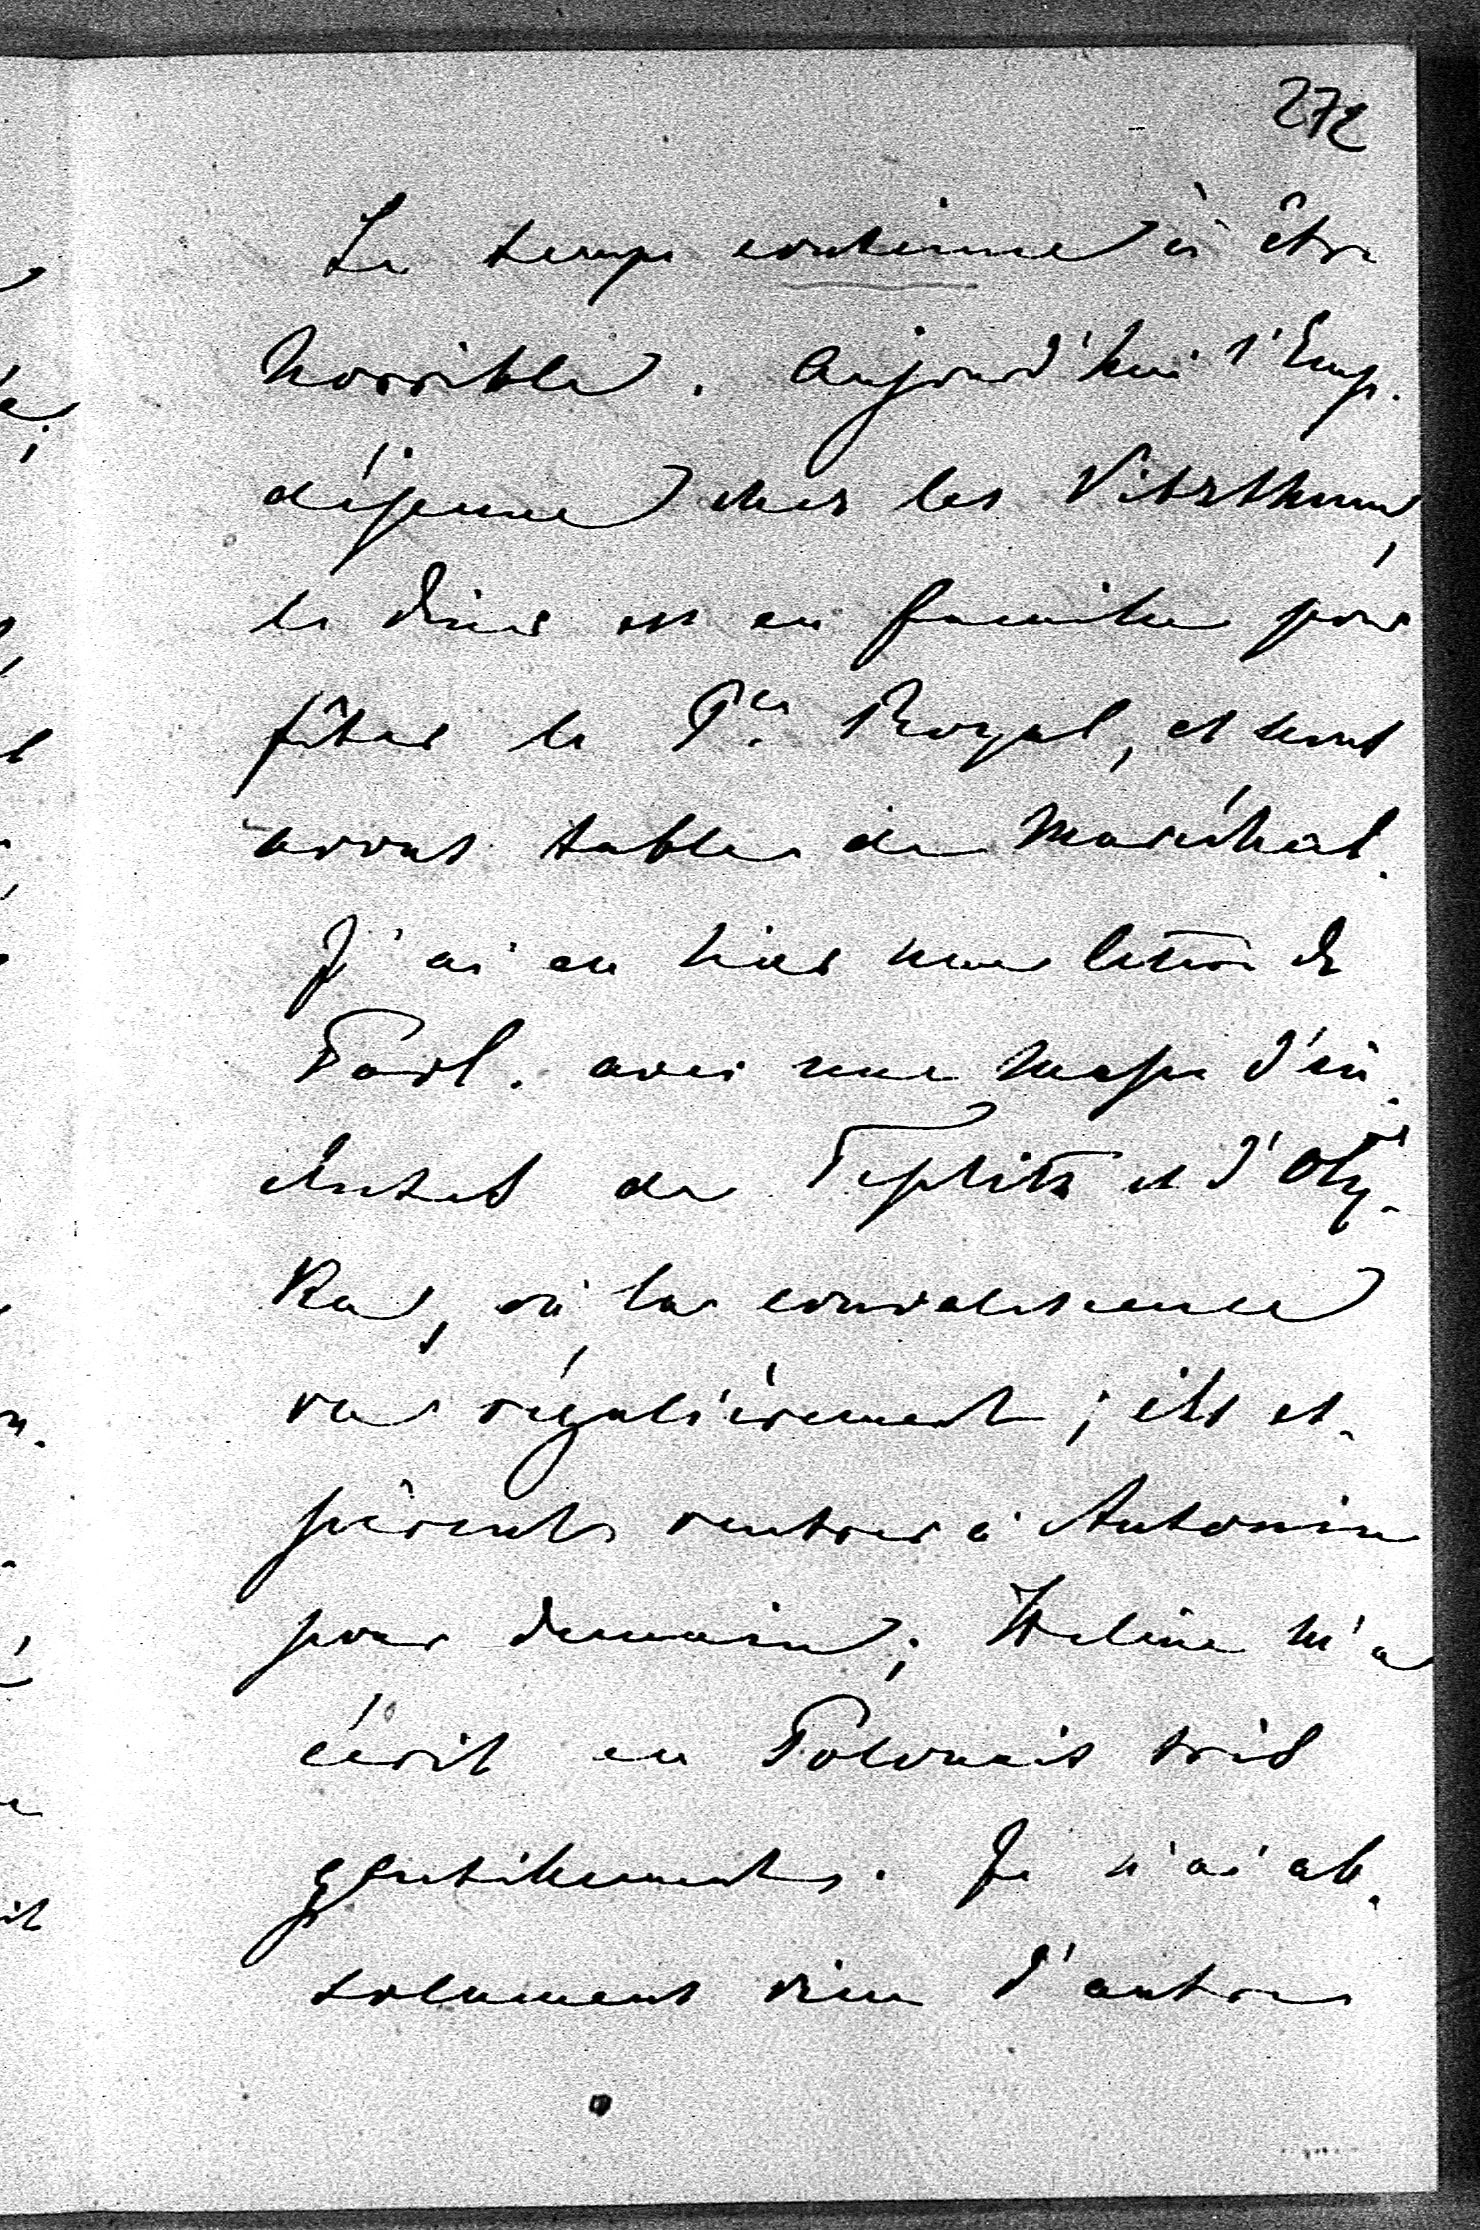 272
Le temps continue à être
horrible. Aujourd'hui l'Emp.
déjeune chez les Vitzthum,
le diner est en famille pour
fêter le Pce Royal, et nous
avons table de Maréchal.
J'ai eu hier une lettre de
Ford. avec une masse d'in-
cluses de Teplitz et d'Oly-
ka, où la convalescence
va régulièrement; ils es-
pèrent rentrer à Antonin
pour demain; Hélène m'a
écrit en Polonais très
gentilement. Je n'ai ab-
solument rien d'autre